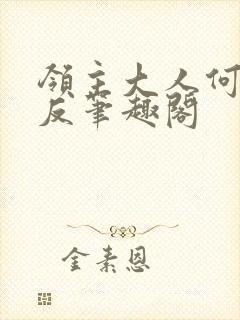 領主大人何
反筆趣閣
金素恩